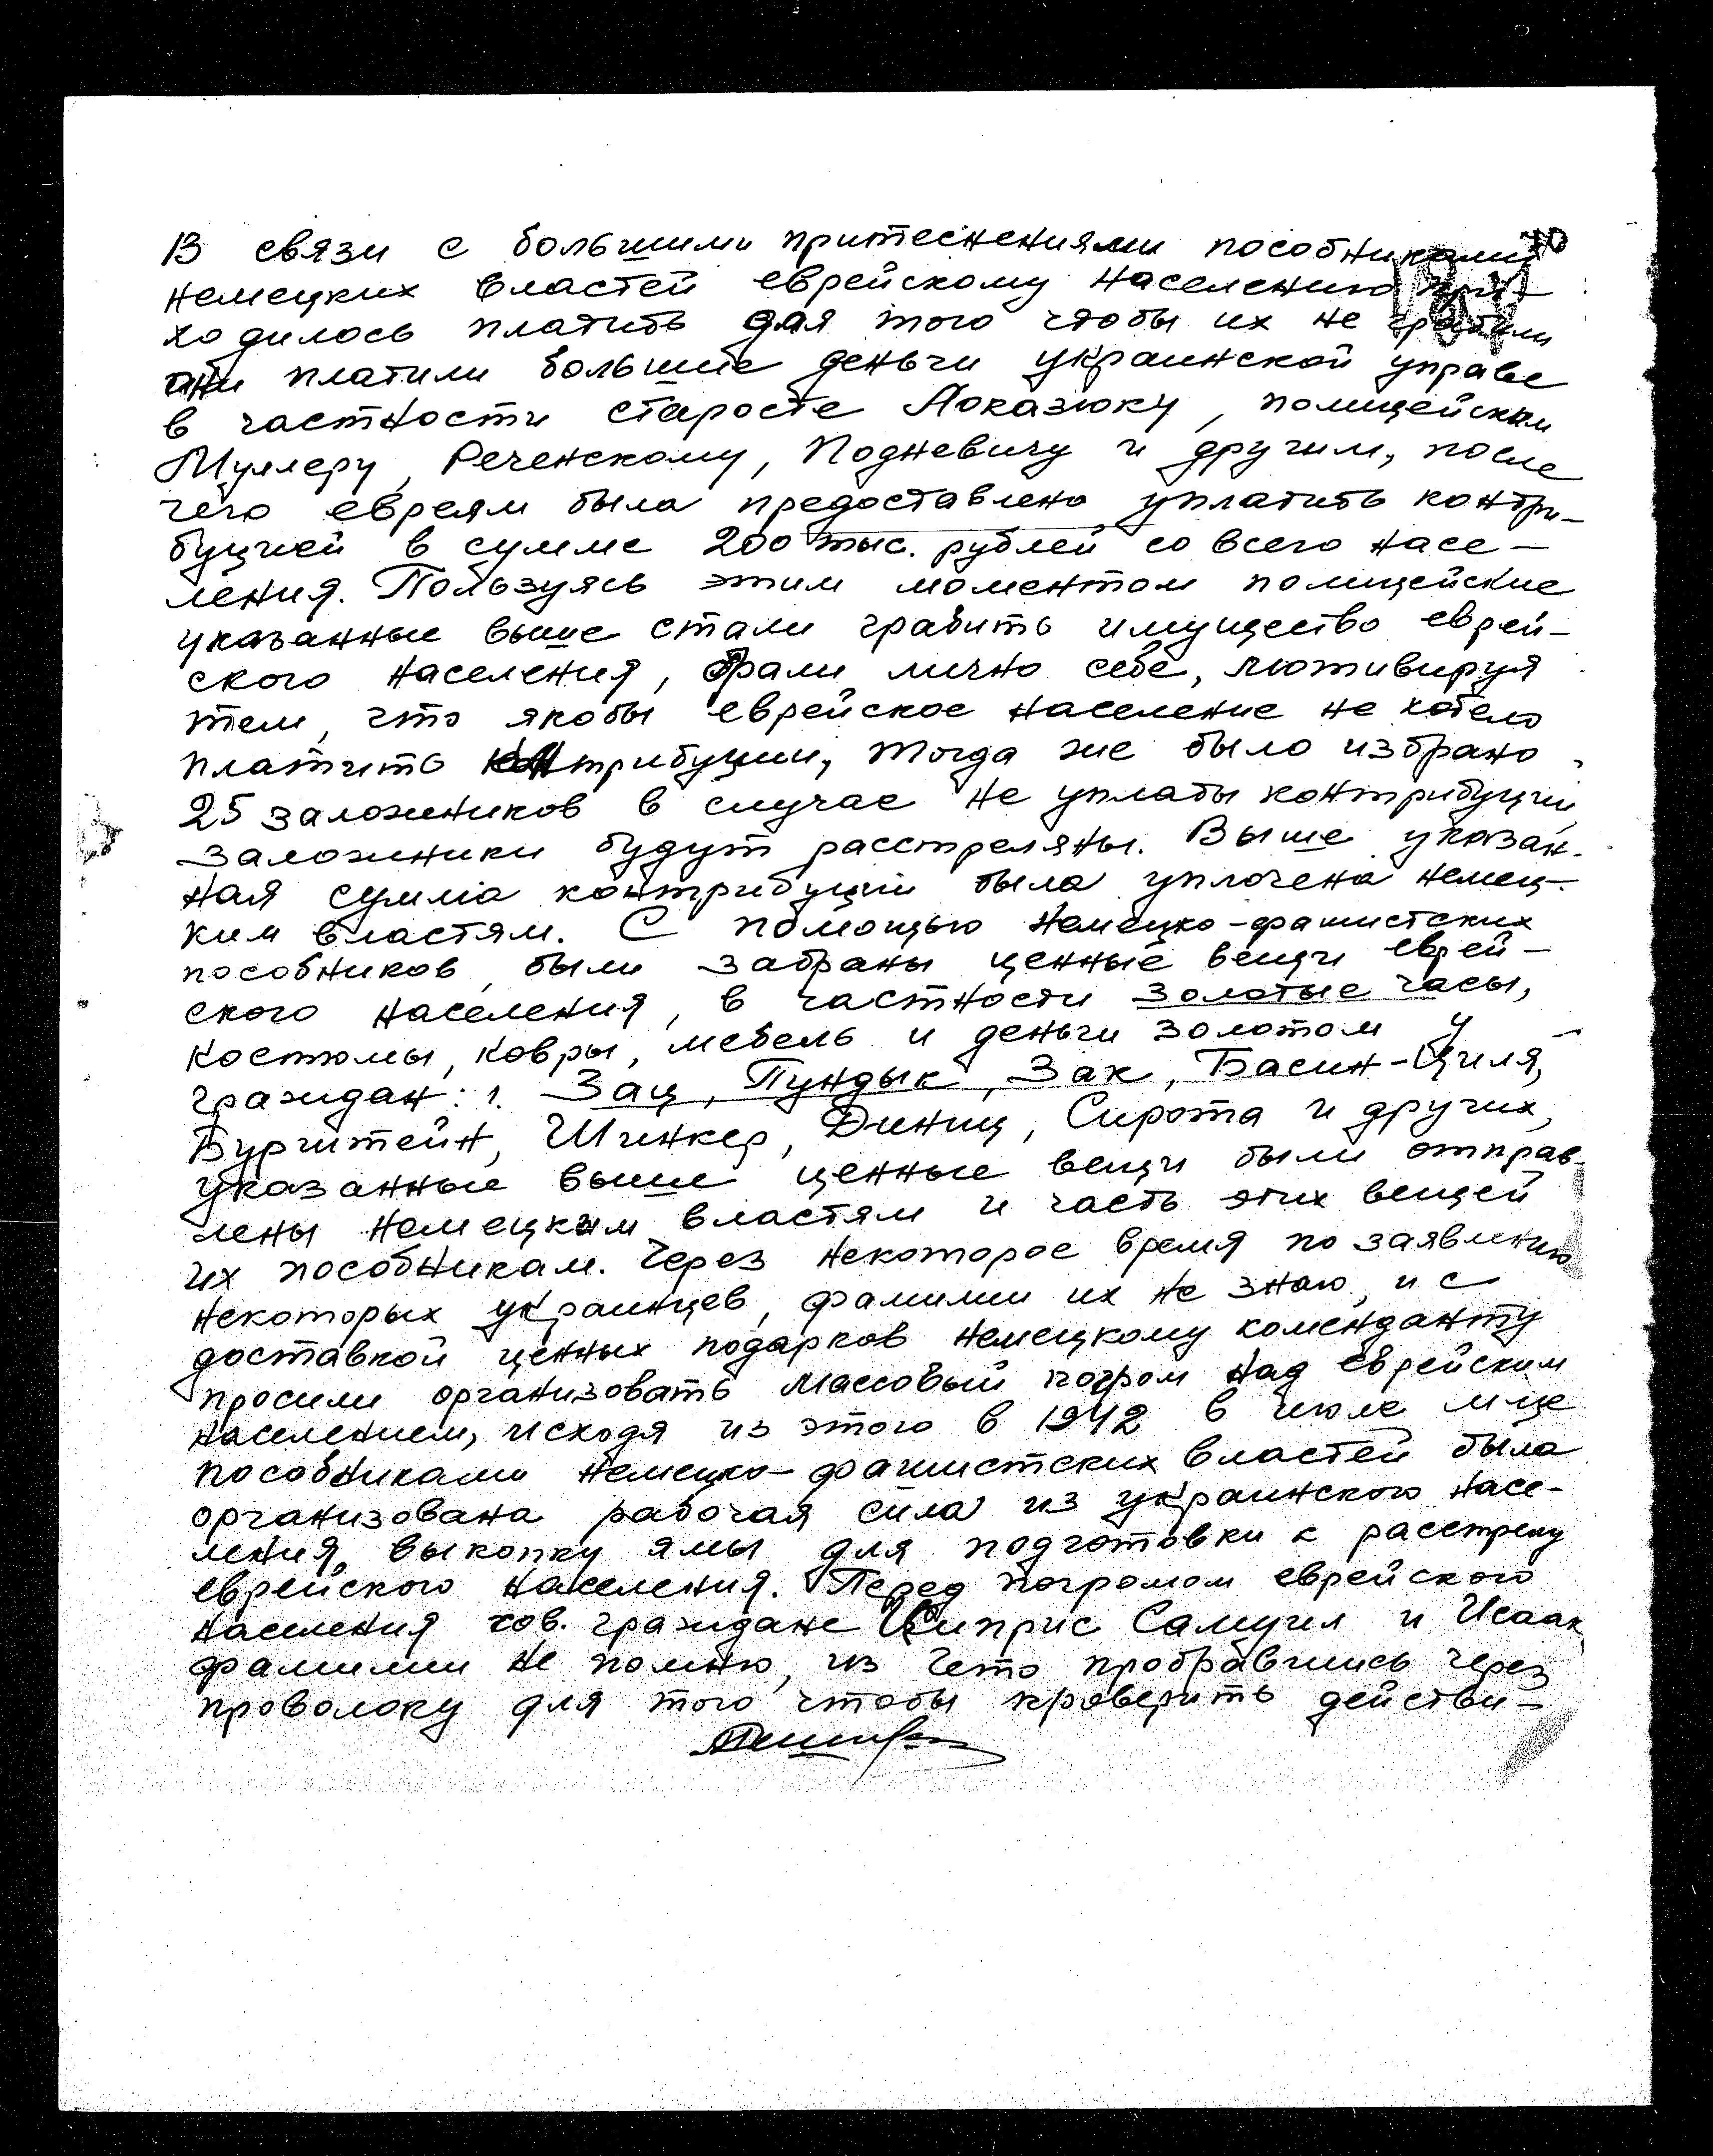 70
В связи с большими притеснениями пособниками
немецких властей еврейскому населению при-
ходилось платить для того чтобы их не грабили
они платили большие деньги украинской управе
в частности старосте Локазюку, полицейским
Муллеру, Реченскому, Подневичу и другим, после
чего евреям была предоставлено уплатить контри-
буцией в сумме 200 тыс. рублей со всего насе-
ления. Пользуясь этим моментом полицейские
указанные выше стали грабить имущество еврей-
ского населения, брали лично себе, мотивируя
тем, что якобы еврейское население не хотело
платить контрибуции, тогда же было избрано
25 заложников в случае не уплаты контрибуции
заложники будут расстреляны. Выше указан-
ная сумма контрибуции была уплочена немец-
ким властям. С помощью немецко-фашистских
пособников, были забраны ценные вещи еврей-
ского населения, в частности золотые часы,
костюмы, ковры, мебель и деньги золотом у
граждан: 1. Зац, Пундык, Зак, Басин-Циля,
Бургштейн, Шинкер, Диниц, Сирота и других,
указанные выше ценные вещи были отправ-
лены немецким властям и часть этих вещей
их пособникам. Через некоторое время по заявлению
некоторых украинцев, фамилии их не знаю, и с
доставкой ценных подарков немецкому коменданту
просили организовать массовый погром над еврейским
населением, исходя из этого в 1942 в июле м-це
пособниками немецко-фашистских властей была
организована рабочая сила из украинского насе-
ления, выкопку ямы для подготовки к расстрелу
еврейского населения. Перед погромом еврейского
населения сов. граждане Киприс Самуил и Исаак,
фамилии не помню, из гето пробравшись через
проволоку для того чтобы проверить действи-